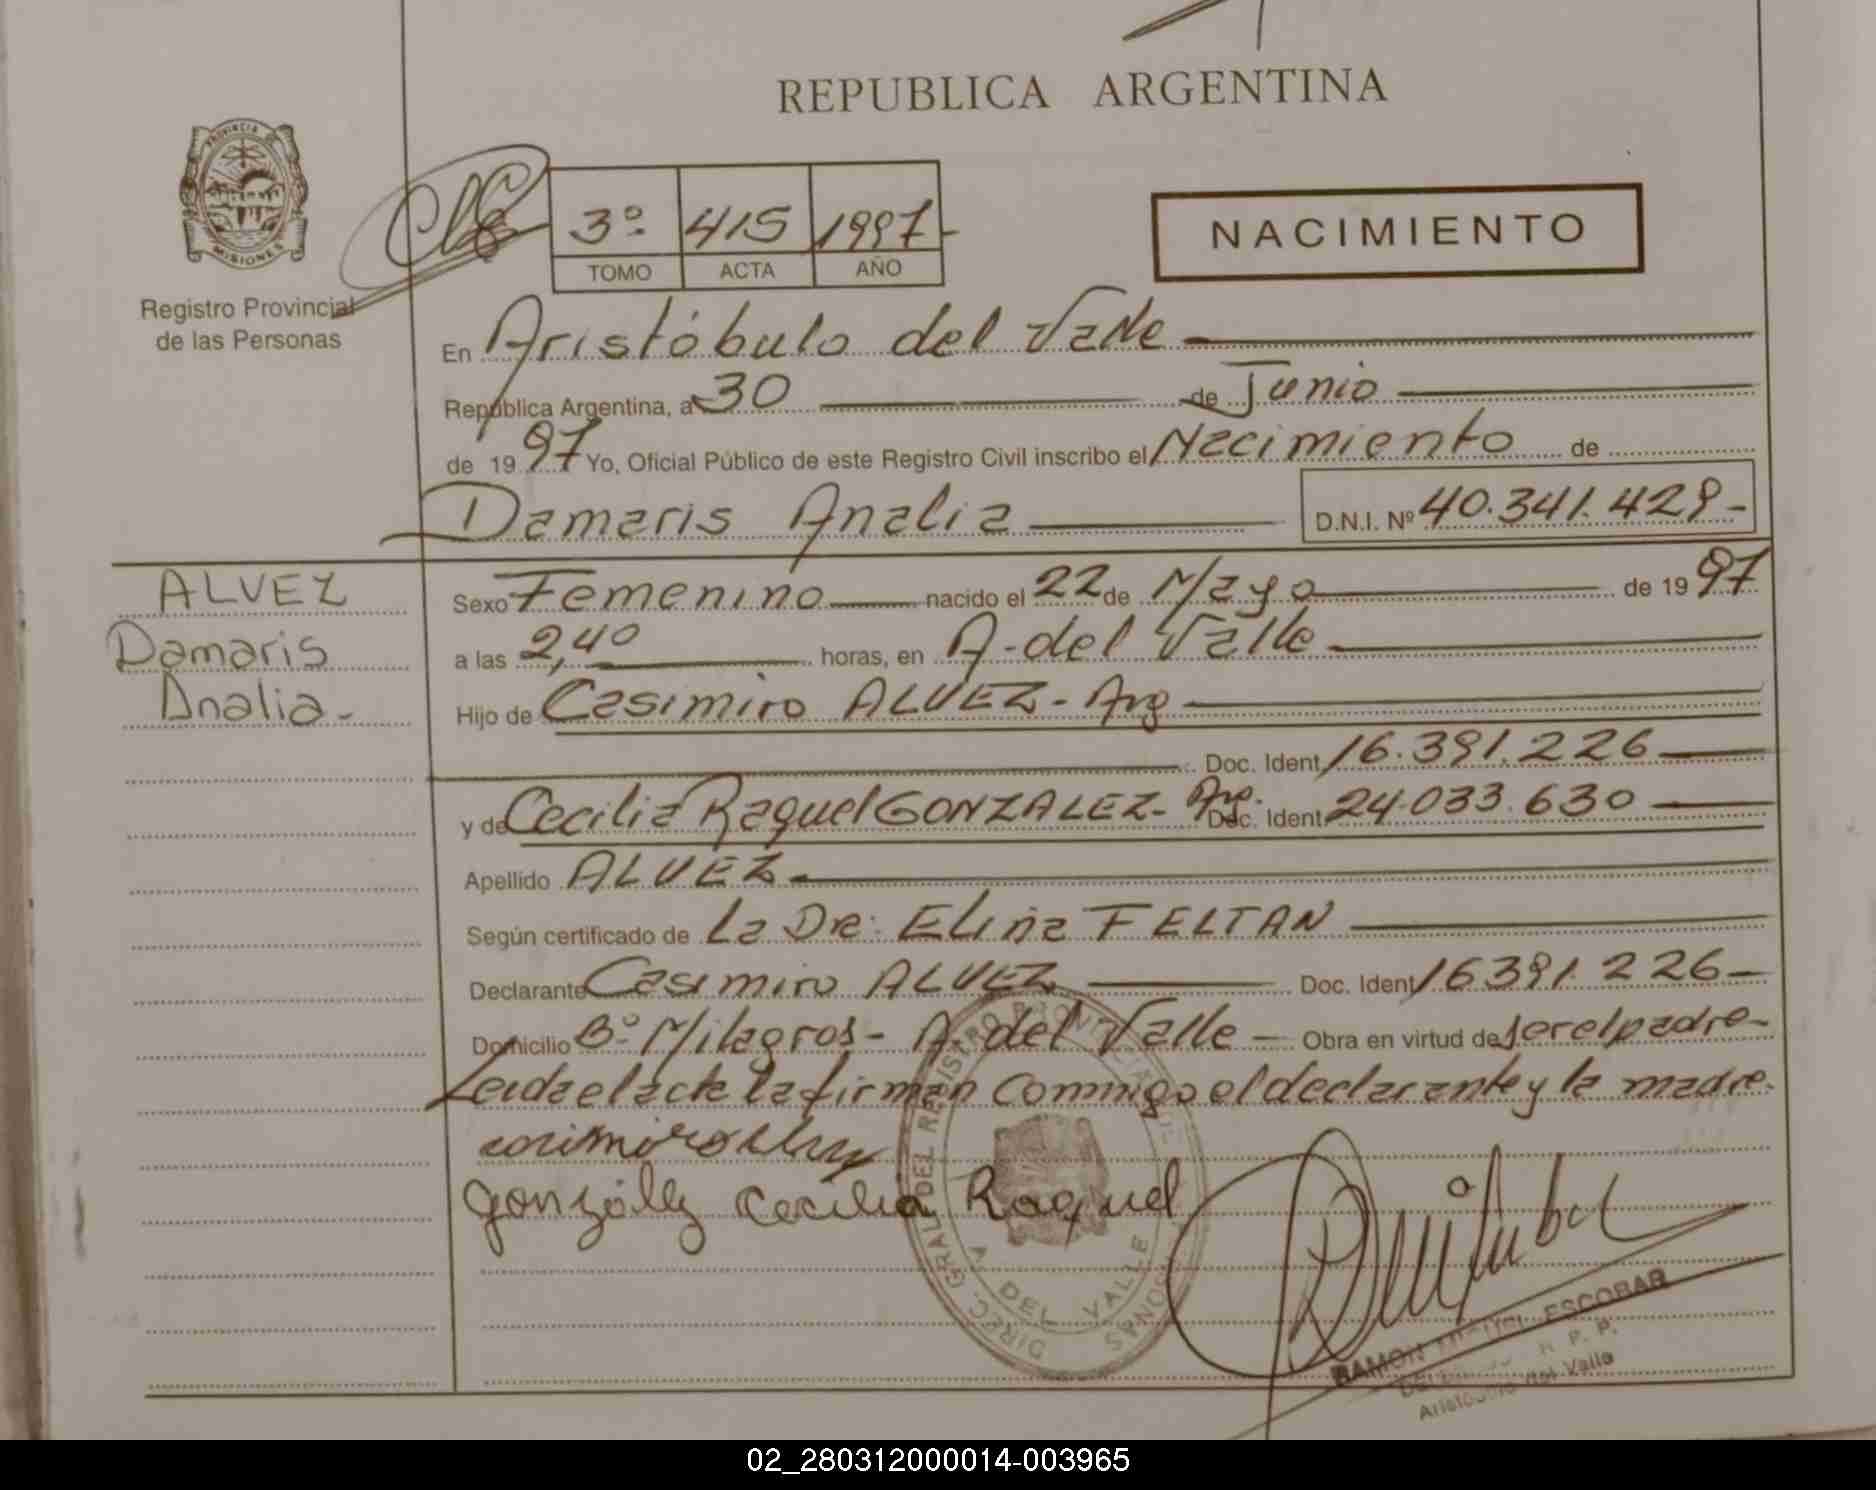 REPUBLICA ARGENTINA
PROVINCIA DE
MISIONES
Registro Provincial
de las Personas
3º 415 1997-
TOMO ACTA AÑO
NACIMIENTO
En Aristóbulo del Valle
República Argentina, a 30 de Junio
de 1997 Yo, Oficial Público de este Registro Civil inscribo el Nacimiento de
Damaris Analia D.N.I. Nº 40.341.429-
ALVEZ
Damaris
Analia-
Sexo Femenino nacido el 22 de Mayo de 1997
a las 2,40 horas, en A. del Valle
Hijo de Casimiro ALVEZ- Arg
Doc. Ident. 16.391.226
y de Cecilia Raquel GONZALEZ- Arg. Doc. Ident. 24.033.630
Apellido ALVEZ
Según certificado de La Dra: Elina FELTAN
Declarante Casimiro ALVEZ Doc. Ident. 16391.226-
Domicilio Bº Milagros- A. del Valle Obra en virtud de ser el padre-
Leida el acta la firman conmigo el declarante y la madre.
Gonzáles Cecilia Raquel
DIREC. GRAL. DEL REGISTRO PROVINCIAL DE PERSONAS
A. DEL VALLE
RAMON MIGUEL ESCOBAR
R. P. P.
Aristóbulo del Valle
02_280312000014-003965